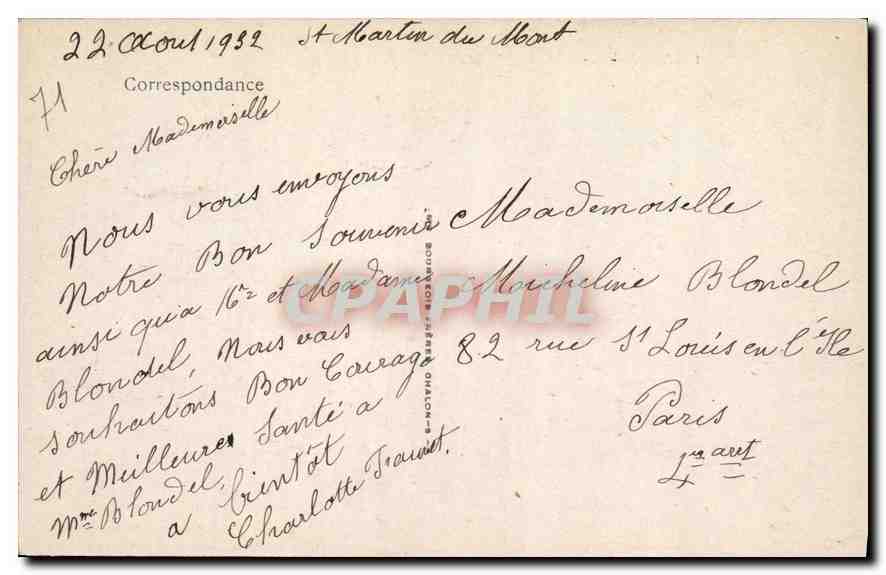 22 Aout 1932 St Martin du Mont
Correspondance
71
Chère Mademoiselle
Nous vous envoyons
Notre Bon Souvenir
ainsi qu'a Mr et Madame
Blondel, Nous vous
souhaitons Bon Courage
et Meilleure Santé a
Mme Blondel,
a bientôt
Charlotte
Mademoiselle
Micheline Blondel
82 rue St Louis en l'Ile
Paris
aret
BOURGEOIS FRÈRES, CHALON-S
CPAPHIL